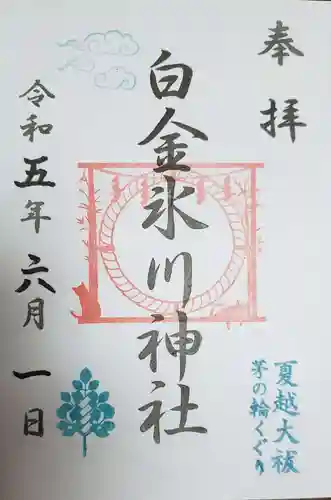 奉拝
白金氷川神社
令和五年六月一日
夏越大祓
茅の輪くぐり